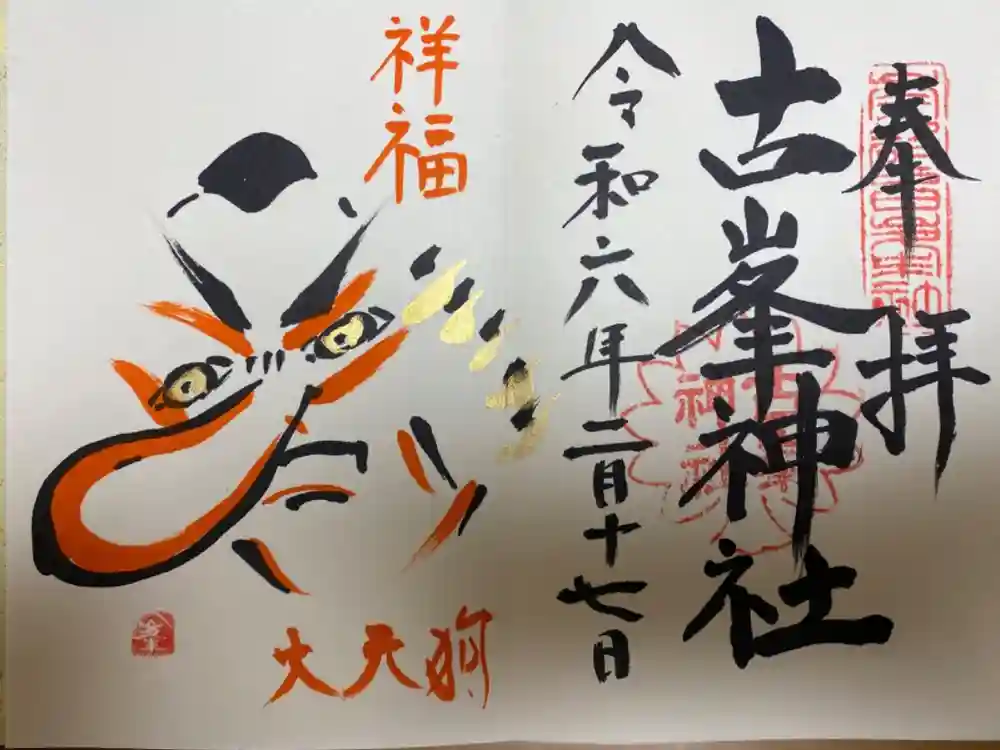 奉拝
古峯神社
令和六年二月十七日
祥福
大天狗